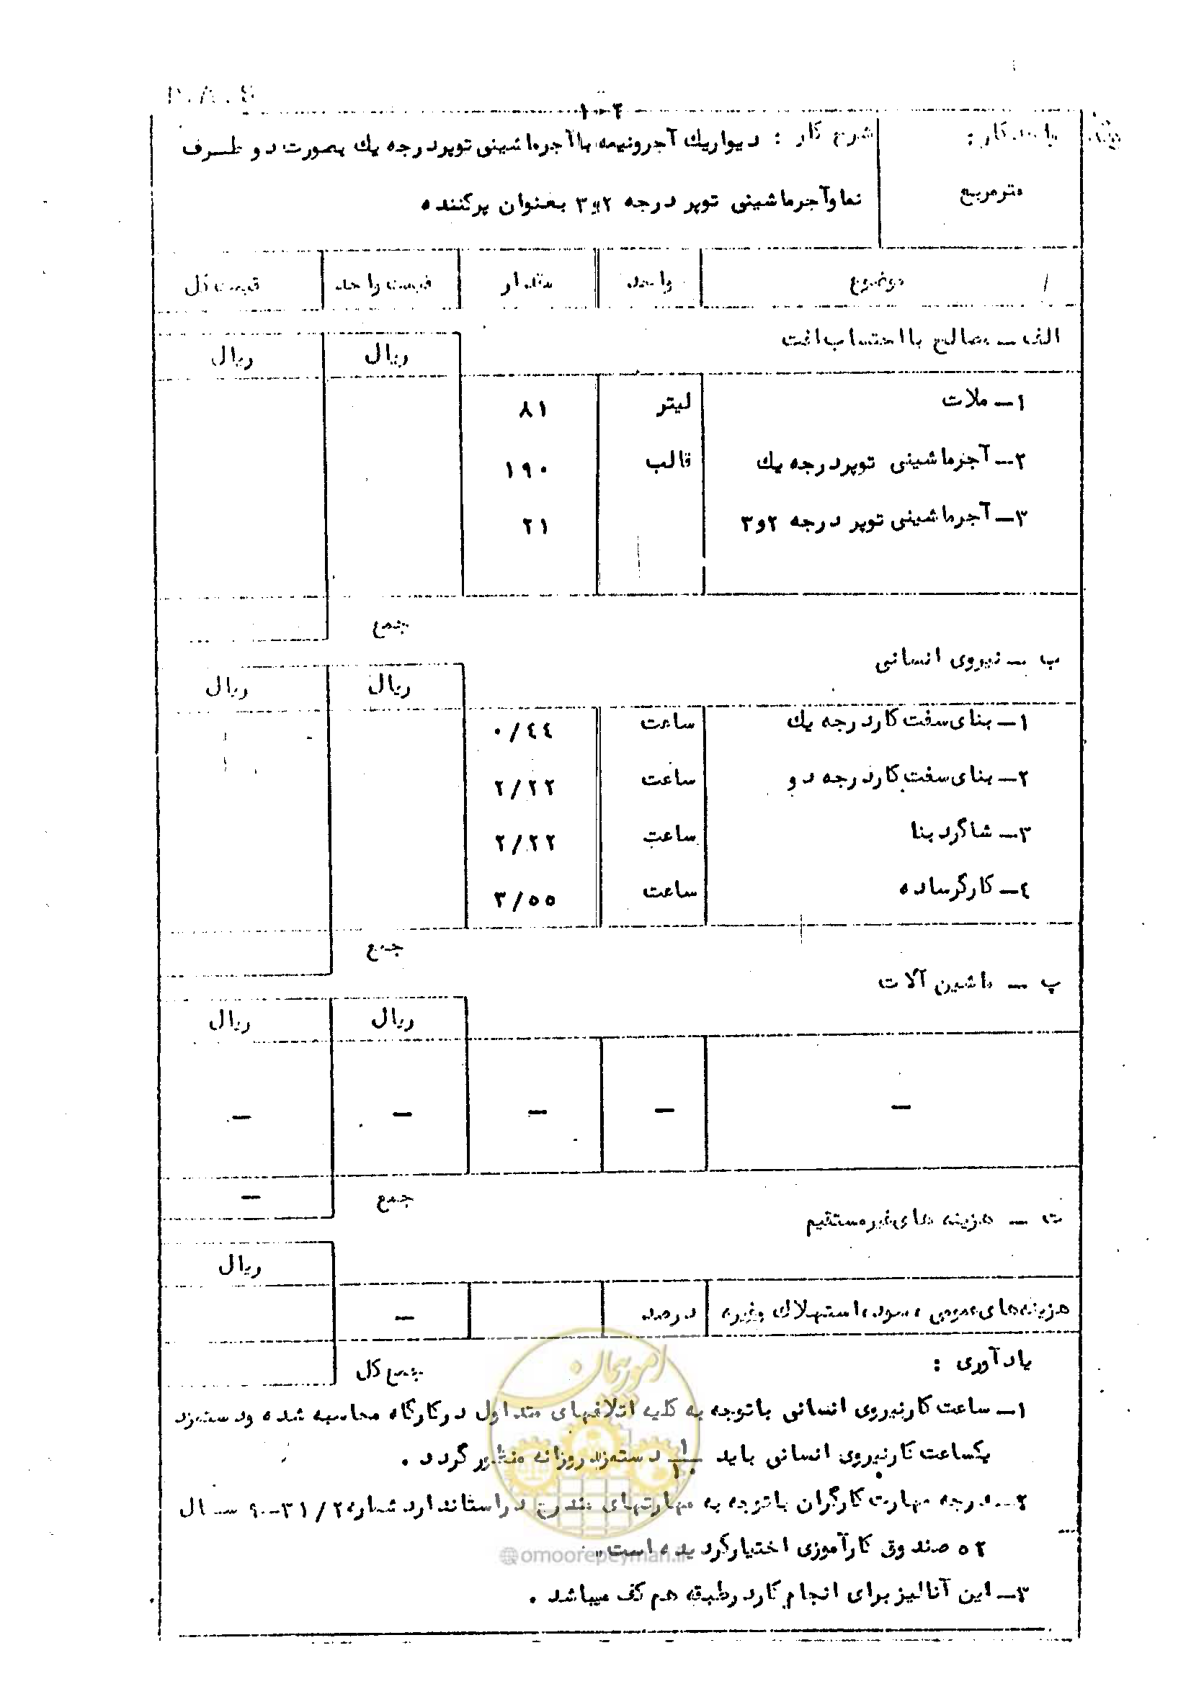 ۱-۲
شرح کار : دیواریك آجرونیمه باآجرماشینی توپردرجه یك بصورت دو طرف
واحدکار :
نماوآجرماشینی توپر درجه ۲و۳ بعنوان پرکننده
مترمربع
موضوع واحد مقدار قیمت واحد قیمت کل
الف ــ مصالح بااحتساب افت
ریال ریال
۱ــ ملات لیتر ۸۱
۲ــ آجرماشینی توپردرجه یك قالب ۱۹۰
۳ــ آجرماشینی توپر درجه ۲و۳ ۲۱
جمع
ب ــ نیروی انسانی
ریال ریال
۱ــ بنای سفت کاردرجه یك ساعت ۰/٤٤
۲ــ بنای سفت کاردرجه دو ساعت ۲/۲۲
۳ــ شاگردبنا ساعت ۲/۲۲
٤ــ کارگرساده ساعت ۳/۵۵
جمع
پ ــ ماشین آلات
ریال ریال
– – – – –
جمع –
ت ــ هزینه های غیرمستقیم
ریال
هزینه‌های عمومی ، سود، استهلاك وغیره درصد –
جمع کل
یادآوری :
۱ــ ساعت کارنیروی انسانی باتوجه به کلیه اتلافهای متداول درکارگاه محاسبه شده ودستمزد
یکساعت کارنیروی انسانی باید ۱/۱۰ دستمزد روزانه منظور گردد .
۲ــ درجه مهارت کارگران باتوجه به مهارتهای مندرج دراستاندارد شماره ۹۰-۳۱/۲ سال
۵۲ صندوق کارآموزی اختیارگردیده است .
۳ــ این آنالیز برای انجام کاردرطبقه هم کف میباشد .
امور پیمان
@omoorepeyman.ir